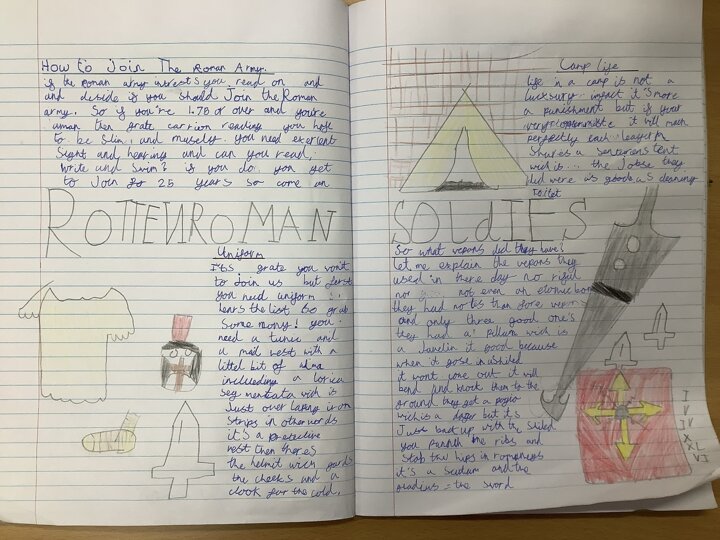 How to Join The Roman Army.
if the roman army intrests you read on and
and decide if you should Join the Roman
army. So if you're 1.78 or over and you're
a man then grate carrion reading you hafe
to be Slim, and musely. you need exerlent
Sight and hearing and can you read,
write and Swim? if you do you get
to Join for 25 years so come on
ROTTEN ROMAN
Uniform
It's grate you won't
to Join us but ferst
you need uniform !!
hears the list. So grab
Some mony! you
need a tunic and
a mad vest with a
littel bit of
inclueding a lorica
Segmentata wich is
Just over laping iron
Strips in other words
it's a pretective
vest then theres
the helmet wich gards
the cheeks and a
clook for the cold.
Camp Life
life in a camp is not a
lucksury infact it's more
a punishment but if your
very it will
perfectly each
Shares a tent
wich is the Jobse they
did were as good as cleaning
toilet
SOLdIES
So what wepans did they have?
let me explain the wepans they
used in there day no rifal
nor not even an atomic bom
they had no les than fore wepons
and only three good one's
they had a pillum wich is
a Javelin it good because
when it gose in a shiled
it won't come out it will
bend and knock them to the
ground. they got a pugio
wich is a dager but it's
Just back up with the Sheiled
you punnh the ribs and
Stab the hips in
it's a Scutum and the
gladius = the Sword
I
V
IV
X
XL
VI